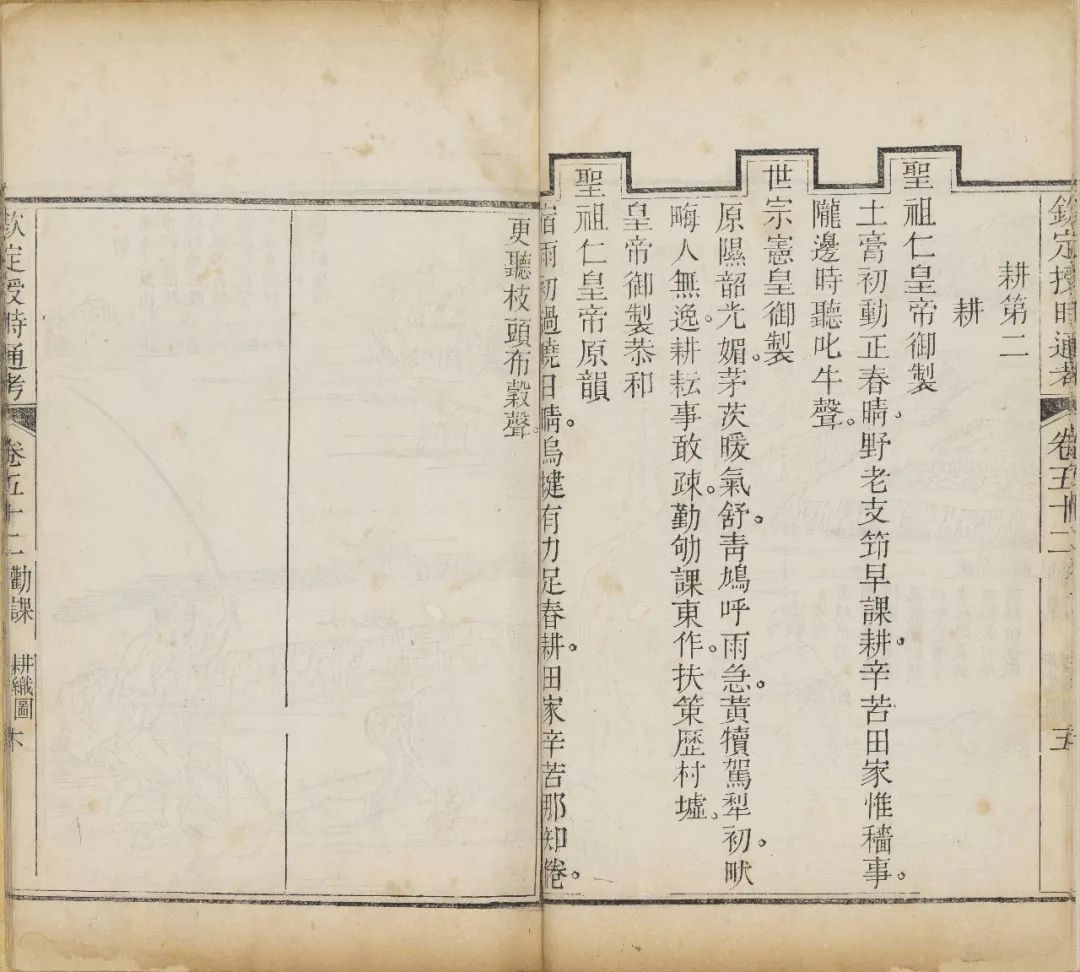 欽定授時通考 卷五十二 五
耕第二
耕
聖祖仁皇帝御製
土膏初動正春晴。野老支笻早課耕。辛苦田家惟穡事。
隴邊時聽叱牛聲。
世宗憲皇御製
原隰韶光媚。茅茨暖氣舒。青鳩呼雨急。黃犢駕犁初。畎
畮人無逸。耕耘事敢疎。勤劬課東作。扶策歷村墟。
皇帝御製恭和
聖祖仁皇帝原韻
宿雨初過曉日晴。烏犍有力足春耕。田家辛苦那知倦。
更聽枝頭布穀聲。
欽定授時通考 卷五十二 勸課 耕織圖